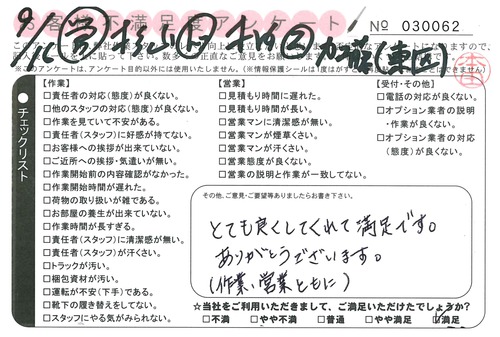 お客様不満足度アンケート
№ 030062
【作業】
□責任者の対応(態度)が良くない。
□他のスタッフの対応(態度)が良くない。
□作業を見ていて不安がある。
□責任者(スタッフ)に好感が持てない。
□お客様への挨拶・気遣いが出来ていない。
□ご近所への挨拶・気遣いが無い。
□作業開始前の内容確認がなかった。
□作業開始時間が遅れた。
□荷物の取り扱いが雑である。
□お部屋の養生が出来ていない。
□作業時間が長すぎる。
□責任者(スタッフ)に清潔感が無い。
□責任者(スタッフ)が汗くさい。
□トラックが汚い。
□梱包資材が汚い。
□運転が不安(下手)である。
□靴下の履き替えをしてない。
□スタッフにやる気がみられない。
【営業】
□見積もり時間に遅れた。
□見積もり時間が長い。
□営業マンに清潔感が無い。
□営業マンが煙草くさい。
□営業マンが汗くさい。
□営業態度が良くない。
□営業の説明と作業が一致してない。
【受付・その他】
□電話の対応が良くない。
□オプション業者の説明
・作業が良くない。
□オプション業者の対応
(態度)が良くない。
●チェックリスト
その他、ご意見・ご要望等ありましたらお書き下さい。
とても良くしてくれて満足です。
ありがとうございます。
(作業、営業ともに)
☆当社をご利用いただきまして、ご満足いただけたでしょうか?
□不満 □やや不満 □普通 □やや満足 □満足